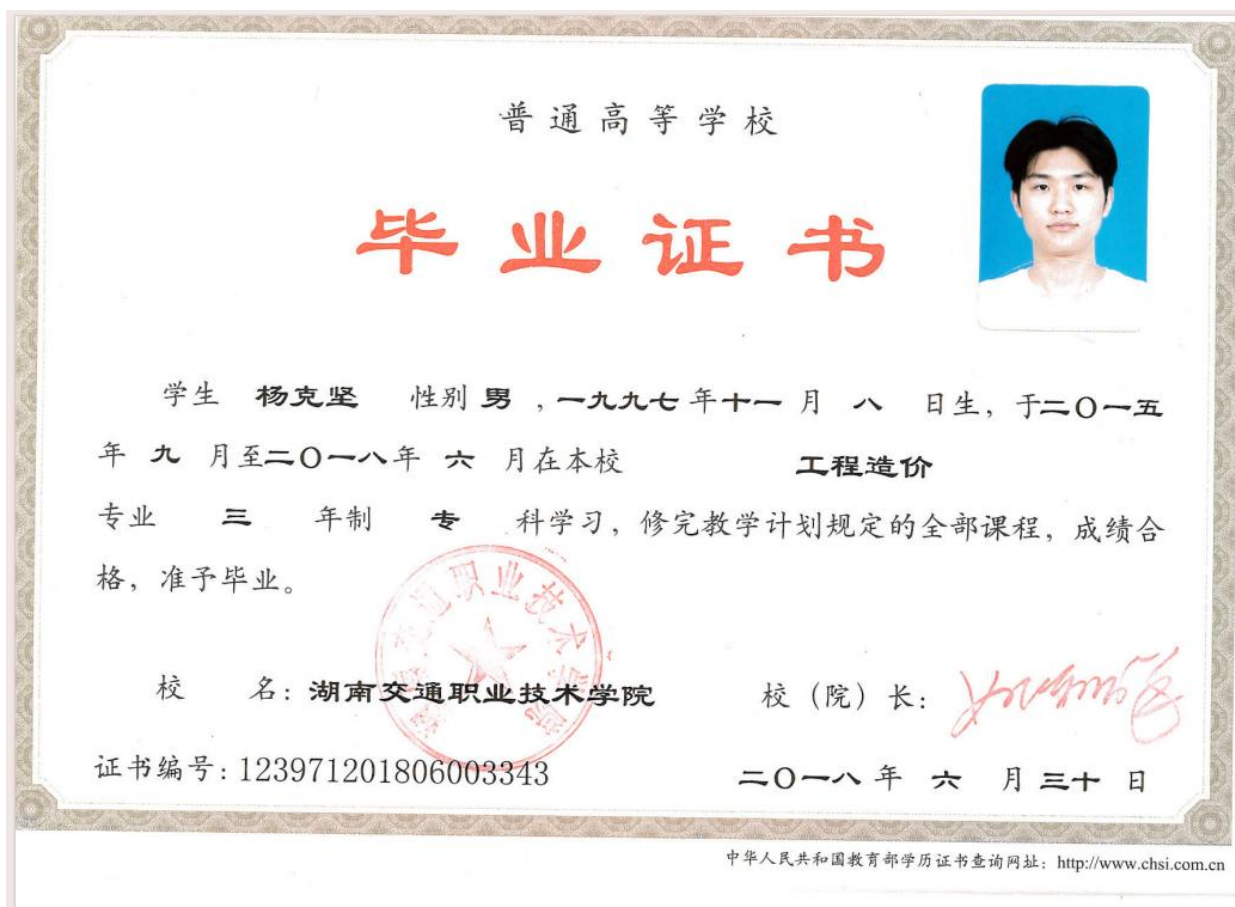 普通高等学校
毕业证书
学生 杨克坚 性别 男 ，一九九七 年 十一 月 八 日生，于二〇一五
年 九 月至二〇一八年 六 月在本校 工程造价
专业 三 年制 专 科学习，修完教学计划规定的全部课程，成绩合
格，准予毕业。
校 名：湖南交通职业技术学院 校（院）长：
证书编号：123971201806003343 二〇一八 年 六 月 三十 日
中华人民共和国教育部学历证书查询网址：http://www.chsi.com.cn